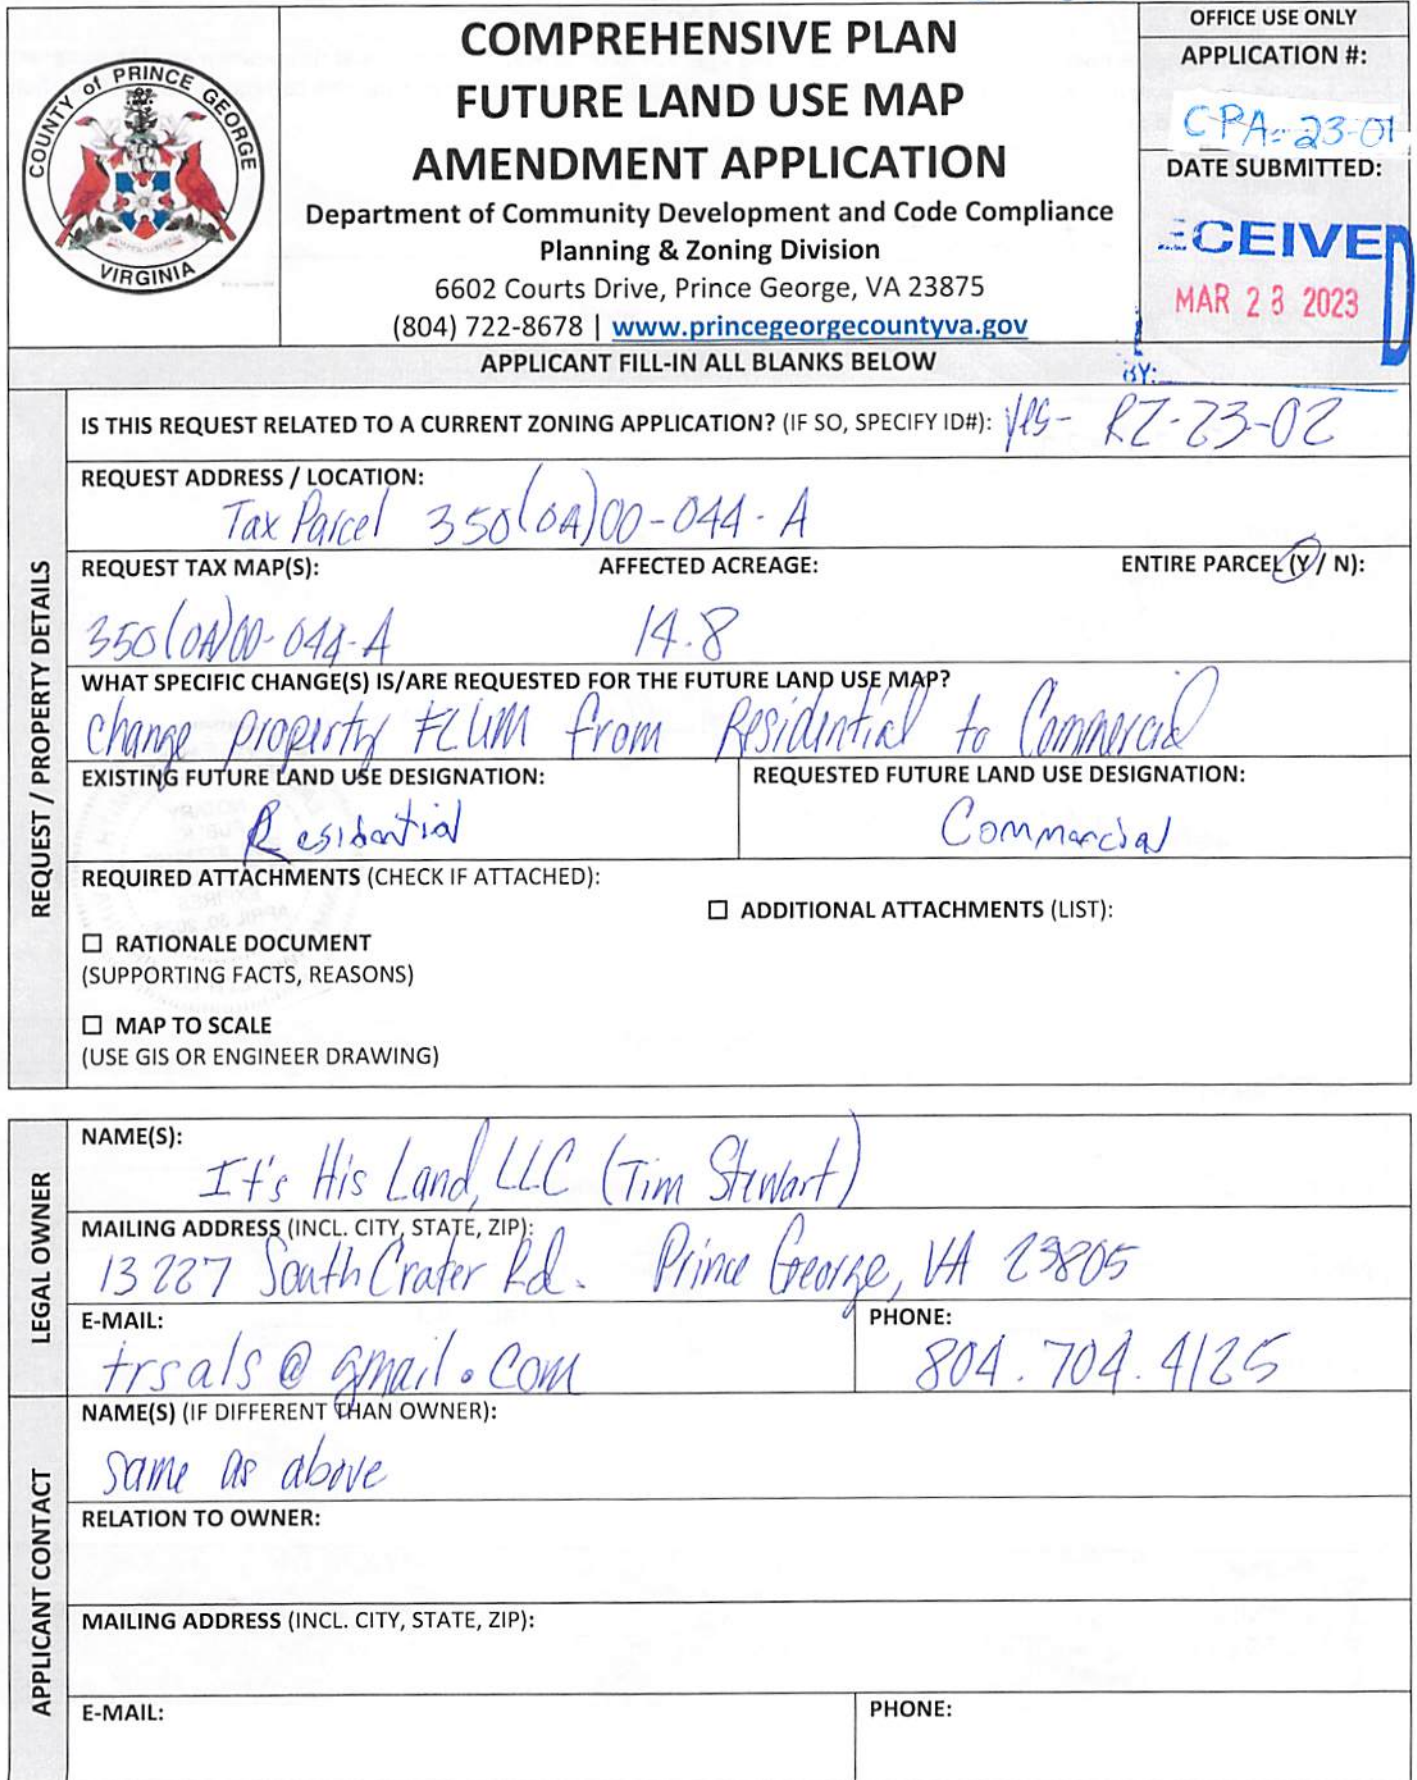 COUNTY of PRINCE GEORGE
VIRGINIA
COMPREHENSIVE PLAN
FUTURE LAND USE MAP
AMENDMENT APPLICATION
Department of Community Development and Code Compliance
Planning & Zoning Division
6602 Courts Drive, Prince George, VA 23875
(804) 722-8678 | www.princegeorgecountyva.gov
OFFICE USE ONLY
APPLICATION #:
CPA-23-01
DATE SUBMITTED:
ECEIVED
MAR 28 2023
BY:
APPLICANT FILL-IN ALL BLANKS BELOW
REQUEST / PROPERTY DETAILS
IS THIS REQUEST RELATED TO A CURRENT ZONING APPLICATION? (IF SO, SPECIFY ID#): yes- RZ-23-02
REQUEST ADDRESS / LOCATION:
Tax Parcel 350(0A)00-044-A
REQUEST TAX MAP(S): AFFECTED ACREAGE: ENTIRE PARCEL (Y / N):
350(0A)00-044-A 14.8
WHAT SPECIFIC CHANGE(S) IS/ARE REQUESTED FOR THE FUTURE LAND USE MAP?
Change property FLUM from Residential to Commercial
EXISTING FUTURE LAND USE DESIGNATION: REQUESTED FUTURE LAND USE DESIGNATION:
Residential Commercial
REQUIRED ATTACHMENTS (CHECK IF ATTACHED):
☐ ADDITIONAL ATTACHMENTS (LIST):
☐ RATIONALE DOCUMENT
(SUPPORTING FACTS, REASONS)
☐ MAP TO SCALE
(USE GIS OR ENGINEER DRAWING)
LEGAL OWNER
NAME(S):
It's His Land, LLC (Tim Stewart)
MAILING ADDRESS (INCL. CITY, STATE, ZIP):
13227 South Crater Rd. Prince George, VA 23805
E-MAIL: PHONE:
trsals@gmail.com 804.704.4125
APPLICANT CONTACT
NAME(S) (IF DIFFERENT THAN OWNER):
Same as above
RELATION TO OWNER:
MAILING ADDRESS (INCL. CITY, STATE, ZIP):
E-MAIL: PHONE: